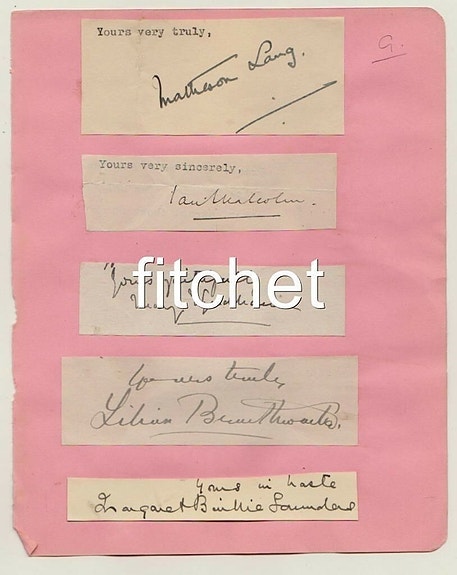 Yours very truly,
Matheson Lang.
G.
Yours very sincerely,
Ian Malcolm.
"Yours
fitchet
Mary
Yours truly,
Lilian Braithwaite.
Yours in haste
Margaret Baillie Saunders